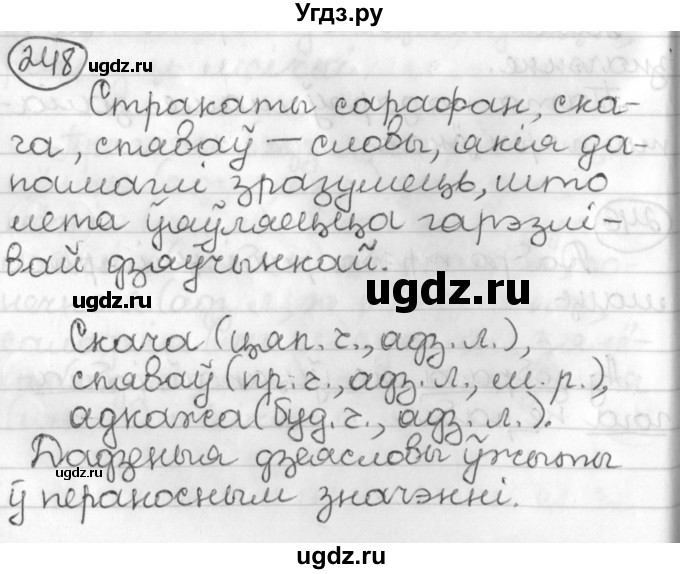 Угдз.ру
248
ugdz.ru
Стракаты сарафан, ска-
га, ставаў — словы, якія да-
памаглі зразумець, што
лета ўяўляецца гарэзлі-
вай дзяўчынкай.
ugdz.ru
ugdz.ru
Скача (цяп. ч., адз. л.),
ставаў (пр. ч., адз. л., м. р.),
адкажа (буд. ч., адз. л.).
Дадзеныя дзеясловы ўжыты
ugdz.ru
ў пераносным значэнні.
ugdz.ru